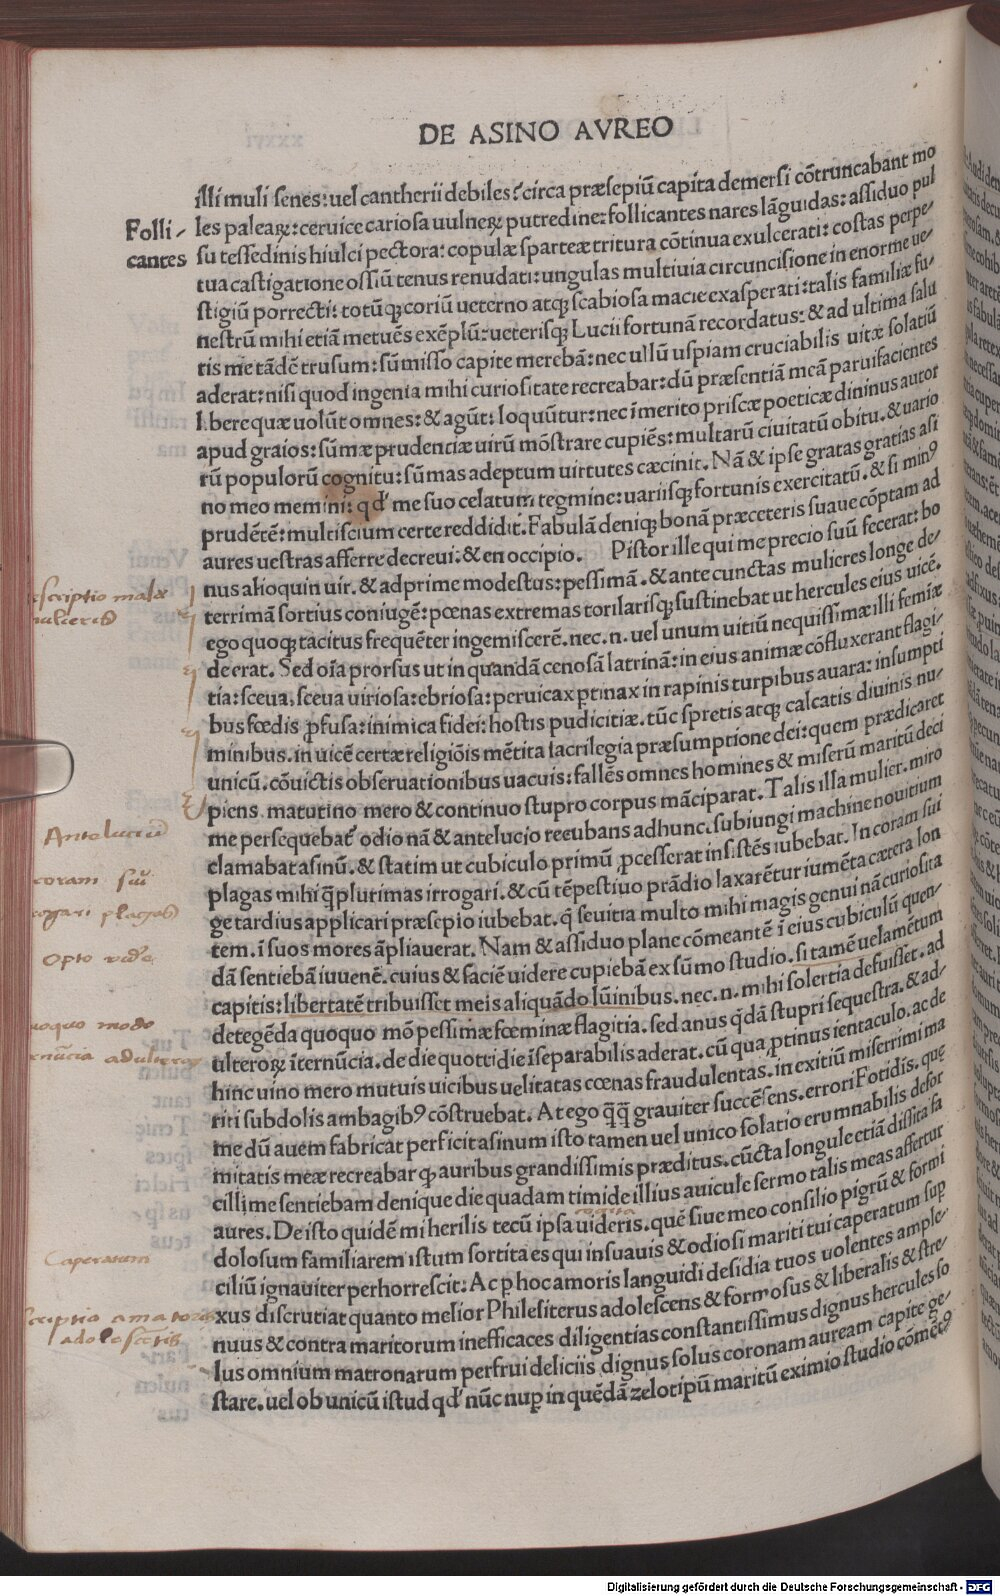 DE ASINO AVREO
illi muli senes: uel cantherii debiles? circa præsepiũ capita demersi cõtruncabant mo
Folli-
cantes
les palearꝝ: ceruice cariosa uulnerꝝ putredine: follicantes nares lãguidas: assiduo pul
su tessedinis hiulci pectora: copulæ sparteæ tritura cõtinua exulcerati: costas perpe-
tua castigatione ossiũ tenus renudati: ungulas multiuia circuncisione in enorme ue-
stigiũ porrecti: totũqꝫ coriũ ueterno atqꝫ scabiosa macie exasperati: talis familiæ fu-
nestrũ mihi etiã metuẽs exẽplũ: ueterisqꝫ Lucii fortunã recordatus: & ad ultima salu
tis me tãdẽ trusum: sũmisso capite merebã: nec ullũ uspiam cruciabilis uitæ solatiũ
aderat: nisi quod ingenia mihi curiositate recreabar: dũ præsentiã meã paruifacientes
libere quæ uolũt omnes: & agũt: loquũtur: nec ĩmerito priscæ poeticæ dininus autor
apud graios: sũmæ prudentiæ uirũ mõstrare cupiẽs: multarũ ciuitatũ obitu. & uario
rũ populorũ cognitu: sũmas adeptum uirtutes cæcinit. Nã & ipse gratas gratias asi
no meo memini: qđ me suo celatum tegmine: uariisqꝫ fortunis exercitatũ. & si minꝰ
prudẽtẽ: multiscium certe reddidit. Fabulã deniqꝫ bonã præceteris suaue cõptam ad
aures uestras afferre decreui. & en occipio. Pistor ille qui me precio suũ fecerat: bo
nus alioquin uir. & adprime modestus: pessimã. & ante cunctas mulieres longe de-
escriptio malæ
mulieris
terrimã sortius coniugẽ: pœnas extremas tori larisqꝫ sustinebat ut hercules eius uicẽ.
ego quoqꝫ tacitus frequẽter ingemiscerẽ. nec.n. uel unum uitiũ nequissimæ illi femiæ
deerat. Sed oĩa prorsus ut in quandã cenosã latrinã: in eius animæ cõfluxerant flagi-
tia: sceua, sceua uiriosa: ebriosa: peruicax ꝑtinax in rapinis turpibus auara: insumpti
bus fœdis ꝓfusa: inimica fidei: hostis pudicitiæ. tũc spretis atqꝫ calcatis diuinis nu-
minibus. in uicẽ certæ religiõis mẽtita sacrilegia præsumptione dei: quem prædicaret
unicũ. cõuictis obseruationibus uacuis: fallẽs omnes homines & miserũ maritũ deci
piens. matutino mero & continuo stupro corpus mãciparat. Talis illa mulier. miro
Antelucio
me persequebat̃ odio nã & antelucio recubans adhuc. subiungi machine nouitium
clamabat asinũ. & statim ut cubiculo primũ ꝓcesserat insistẽs iubebat. In coram sui
coram sui
plagas mihi q̃plurimas irrogari. & cũ tẽpestiuo prãdio laxarẽtur iumẽta cætera lon
rogari plagas
ge tardius applicari præsepio iubebat. q̃ seuitia multo mihi magis genuinã curiosita
tem. ĩ suos mores ãpliauerat. Nam & assiduo plane cõmeantẽ ĩ eius cubiculũ quen-
opto vide
dã sentiebã iuuenẽ. cuius & faciẽ uidere cupiebã ex sũmo studio. si tamẽ uelamẽtum
capitis: libertatẽ tribuisset meis aliquãdo lũinibus. nec.n. mihi solertia defuisset. ad
quoquo modo
detegẽda quoquo mõ pessimæ fœminæ flagitia. sed anus q̃dã stupri sequestra. & ad-
ternũcia adulteror
ulterorꝝ ĩternũcia. de die quottidie ĩseparabilis aderat. cũ qua ꝓtinus ientaculo. ac de
hinc uino mero mutuis uicibus uelitatas cœnas fraudulentas. in exitiũ miserrimi ma
riti subdolis ambagibꝰ cõstruebat. At ego q̃q̃ grauiter succẽsens. errori Fotidis. quę
me dũ auem fabricat perficit asinum isto tamen uel unico solatio erumnabilis defor
mitatis meæ recreabar qꝫ auribus grandissimis præditus. cũcta longule etiã dissita fa
cillĩme sentiebam denique die quadam timide illius auicule sermo talis meas affertur
cogita
aures. De isto quidẽ mi herilis tecũ ipsa uideris. quẽ siue meo consilio pigrũ & formi
dolosum familiarem istum sortita es qui insuauis & odiosi mariti tui caperatum suꝑ
Caperatum
ciliũ ignauiter perhorrescit: Ac ꝑ hoc amoris languidi desidia tuos uolentes ample-
xus discrutiat quanto melior Philesiterus adolescens & formosus & liberalis & stre-
scriptio amatoris
adolescentis
nuus & contra maritorum inefficaces diligentias constantissimus dignus hercules so
lus omnium matronarum perfrui deliciis dignus solus coronam auream capite ge-
stare. uel ob unicũ istud qđ nũc nuꝑ in quẽdã zelotipũ maritũ eximio studio cõmẽtꝰ